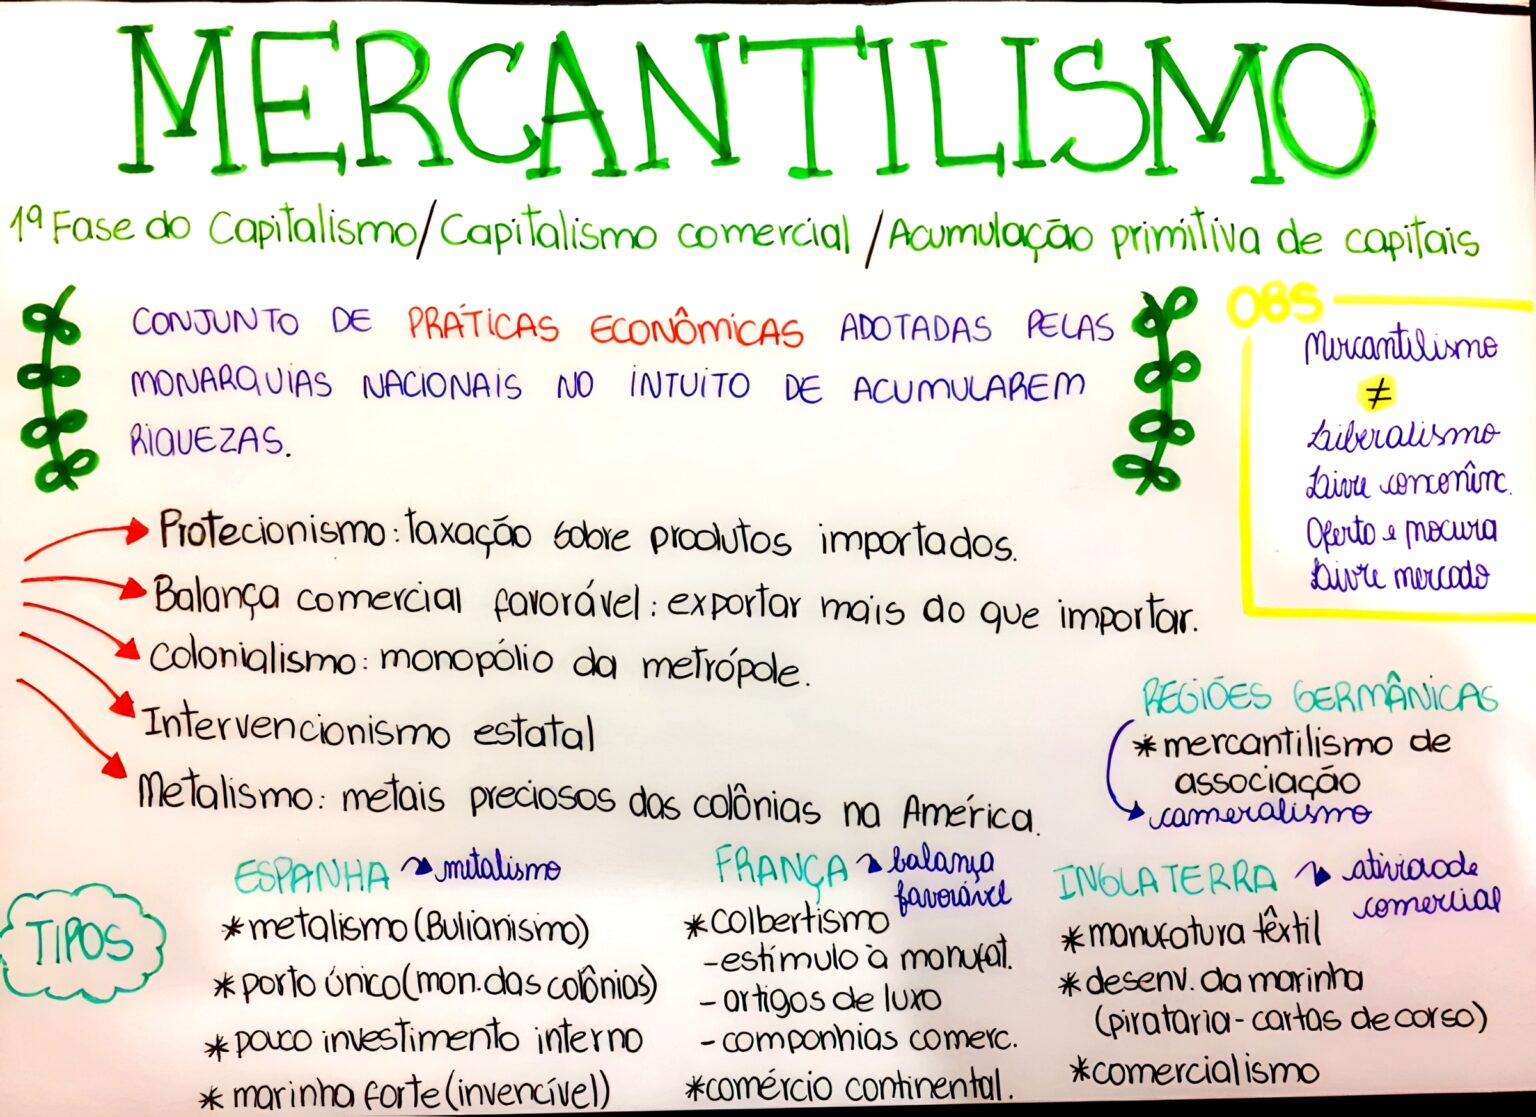 MERCANTILISMO
1ª Fase do Capitalismo/Capitalismo comercial/Acumulação primitiva de capitais
CONJUNTO DE PRÁTICAS ECONÔMICAS ADOTADAS PELAS
MONARQUIAS NACIONAIS NO INTUITO DE ACUMULAREM
RIQUEZAS.
OBS
Mercantilismo
≠
Liberalismo
Livre concorrênc.
Oferta e procura
Livre mercado
Protecionismo: taxação sobre produtos importados.
Balança comercial favorável: exportar mais do que importar.
Colonialismo: monopólio da metrópole.
Intervencionismo estatal
Metalismo: metais preciosos das colônias na América.
REGIÕES GERMÂNICAS
*mercantilismo de
associação
cameralismo
TIPOS
ESPANHA metalismo
*metalismo (Bulianismo)
*porto único (mon. das colônias)
*pouco investimento interno
*marinha forte (invencível)
FRANÇA balança
favorável
*colbertismo
-estímulo à manufat.
- artigos de luxo
- companhias comerc.
*comércio continental.
INGLATERRA atividade
comercial
*manufatura têxtil
*desenv. da marinha
(pirataria - cartas de corso)
*comercialismo